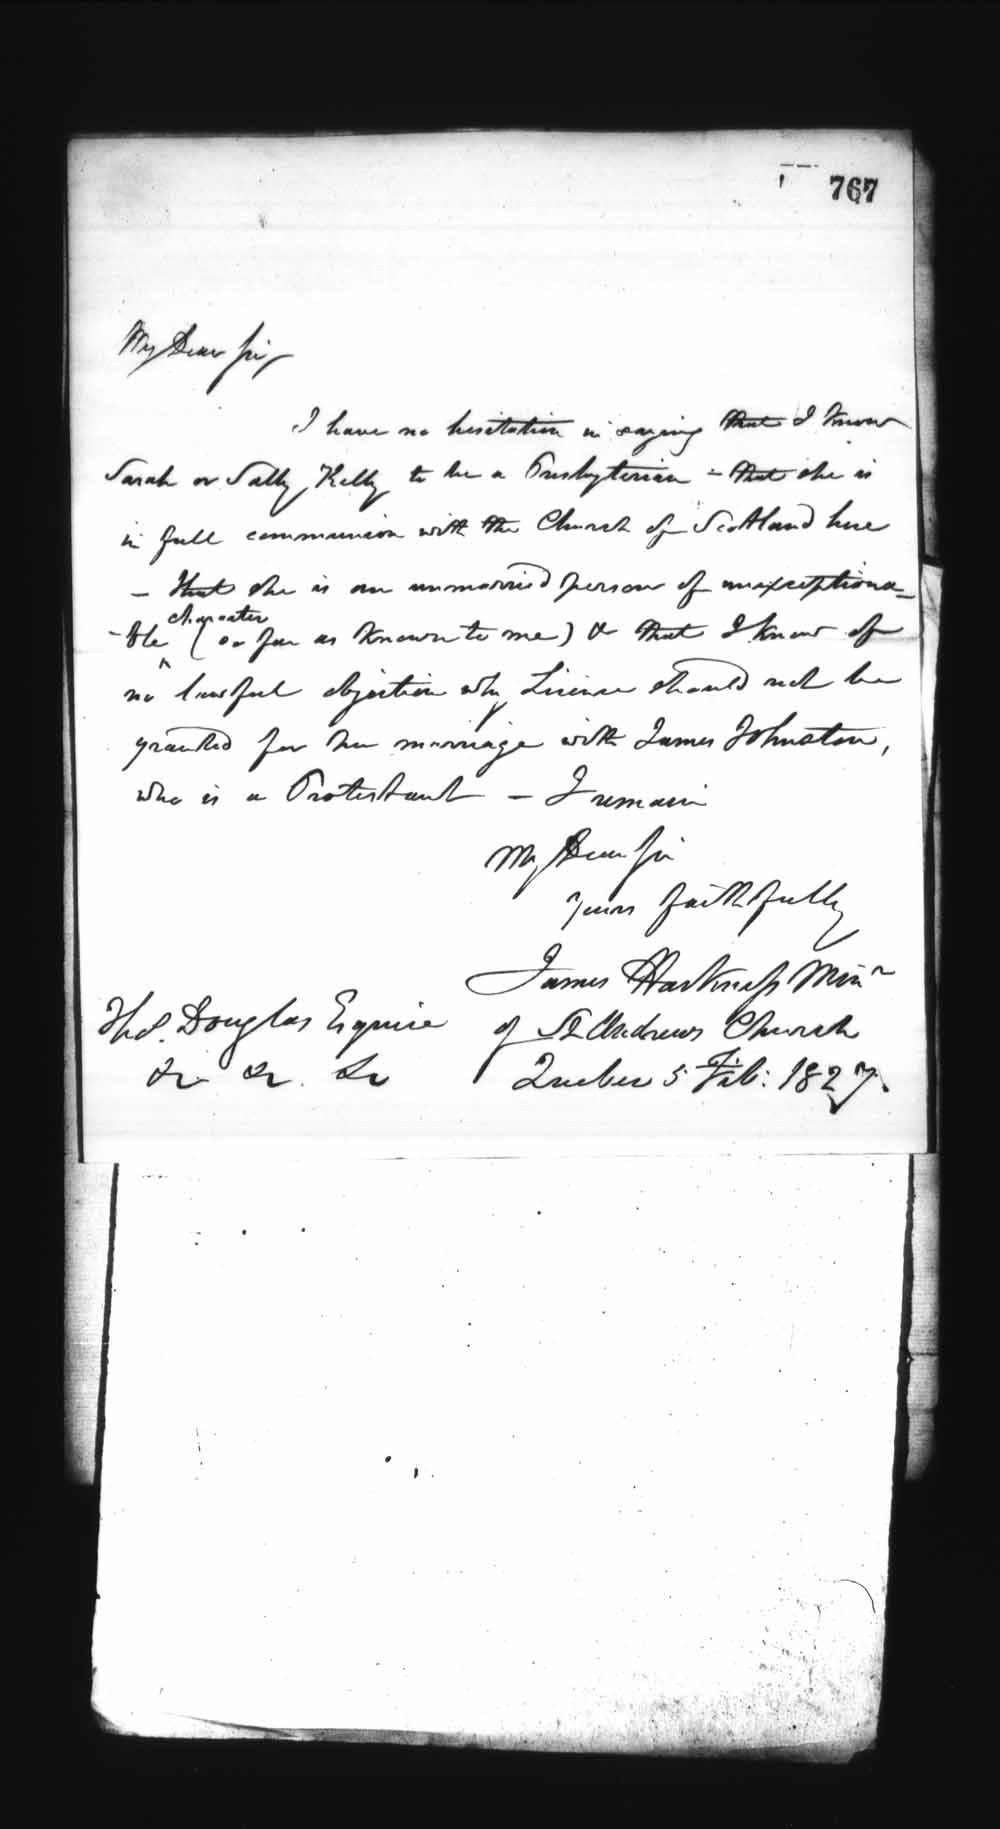 767
My Dear Sir,
I have no hesitation in saying that I know
Sarah or Sally Kelly to be a Presbyterian - that she is
in full communion with the Church of Scotland here
- that she is an unmarried person of unexceptiona-
character
-ble ^ (so far as known to me) & that I know of
no lawful objection why License should not be
granted for her marriage with James Johnston,
who is a Protestant - I remain
My Dear Sir
yours faithfully
James Harkness Minr
of St Andrews Church
Quebec 5 Feb: 1827.
Thos. Douglas Esquire
&c &c. &c